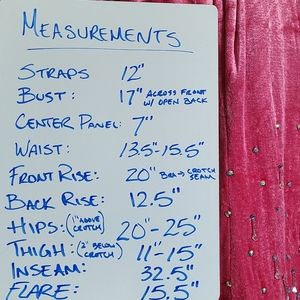 MEASUREMENTS
STRAPS 12"
BUST: 17" ACROSS FRONT
W/ OPEN BACK
CENTER PANEL: 7"
WAIST: 13.5"-15.5"
FRONT RISE: 20" BRA→CROTCH
SEAM
BACK RISE: 12.5"
HIPS: (1" ABOVE
CROTCH) 20"-25"
THIGH: (2" BELOW
CROTCH) 11"-15"
INSEAM: 32.5"
FLARE: 15.5"